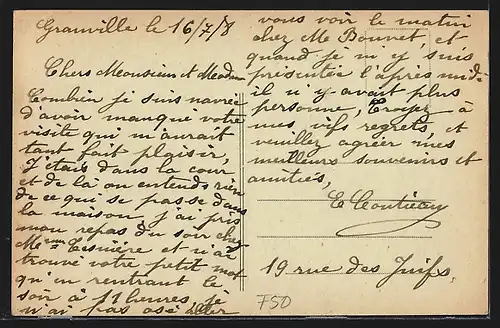 Granville le 16/7/8
Chers Monsieur et Madame
Combien je suis navrée
d'avoir manqué votre
visite qui m'aurait
tant fait plaisir,
J'étais dans la cour
et de là on entends rien
de ce qui se passe dans
la maison, j'ai pris
mon repas du soir chez
Mme et n'ai
trouvé votre petit mot
qu'en rentrant le
soir à 11 heures, je
n'ai pas osé aller
vous voir le matin
chez Me Bonnet, et
quand je m'y suis
présentée l'après midi
il n'y avait plus
personne, Croyez à
mes vifs regrets, et
veuillez agréer mes
meilleurs souvenirs et
amitiés,
19 rue des Juifs
F50